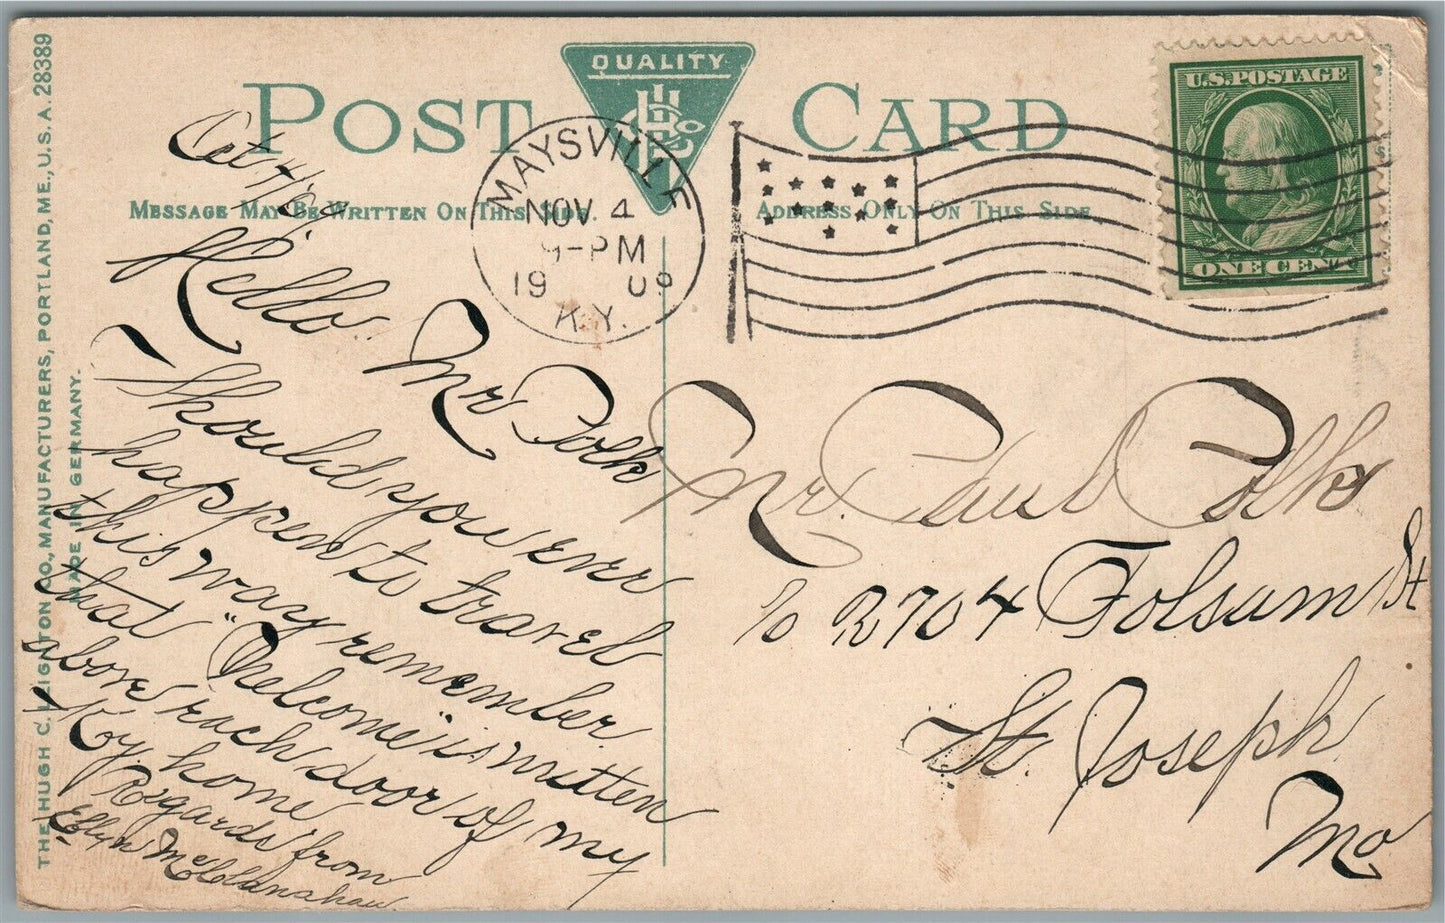 POST CARD
QUALITY
MESSAGE MAY BE WRITTEN ON THIS SIDE.
ADDRESS ONLY ON THIS SIDE
U.S. POSTAGE
ONE CENT
MAYSVILLE
NOV 4
9-PM
19 09
KY.
Oct 4/09.
Hello
Mr Polk
Should you ever
happen to travel
this way remember
that "Welcome" is written
above each door of my
Ky. home
Regards from
Ellyn McClanahan
Mr. Paul Polk
c/o 2704 Folsum St
St. Joseph
Mo
THE HUGH C. LEIGHTON CO., MANUFACTURERS, PORTLAND, ME., U.S.A. 28389
MADE IN GERMANY.